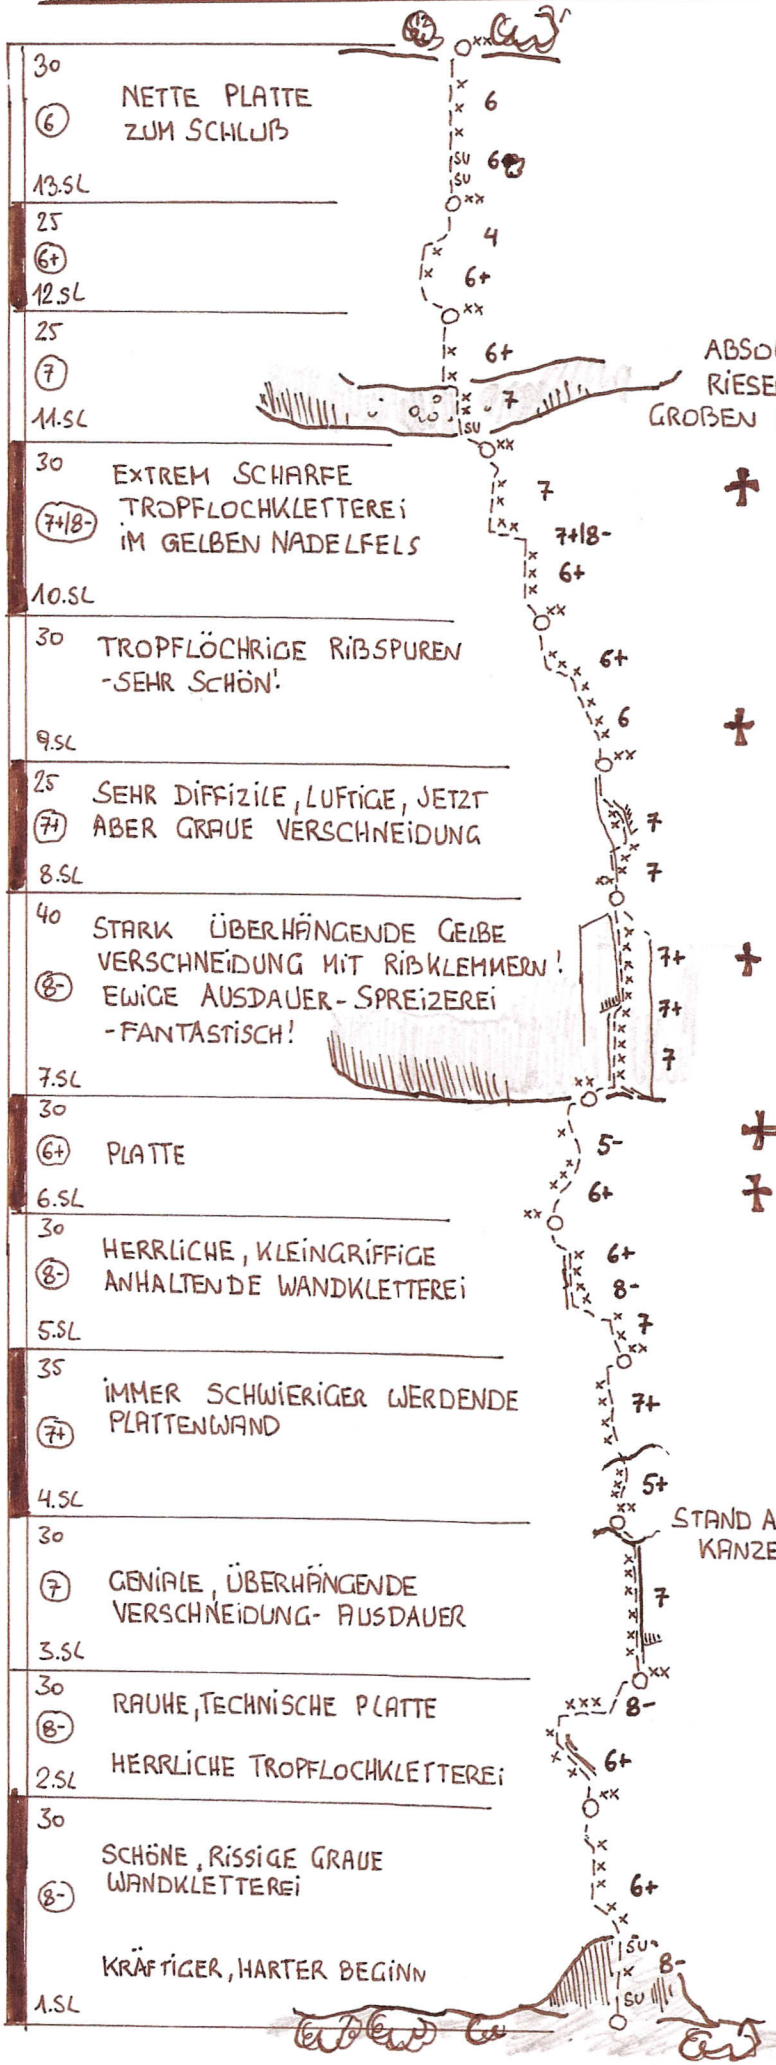 30
6
NETTE PLATTE
ZUM SCHLUß
13.SL
xx
x
6
x
x
SU
6+
SU
xx
25
6+
12.SL
4
x
x
6+
xx
25
7
11.SL
x
6+
x
x
x
7
SU
ABSO
RIESE
GROßEN
xx
30
7+/8-
EXTREM SCHARFE
TROPFLOCHKLETTEREi
iM GELBEN NADELFELS
10.SL
x
7
x
xx
7+/8-
x
x
6+
x
xx
30
TROPFLÖCHRIGE RißSPUREN
-SEHR SCHÖN!
9.SL
xxxx
6+
x
x
6
x
x
xx
25
7+
SEHR DiFFiZiLE, LUFTiGE, JETZT
ABER GRAUE VERSCHNEiDUNG
8.SL
7
7
xx
40
8-
STARK ÜBERHÄNGENDE GELBE
VERSCHNEiDUNG MiT RißKLEMMERN!
EWiGE AUSDAUER-SPREiZEREi
-FANTASTiSCH!
7.SL
7+
7+
7
xx
30
6+
PLATTE
6.SL
x
5-
xxx
6+
xx
30
8-
HERRLiCHE, KLEiNGRiFFiGE
ANHALTENDE WANDKLETTEREi
5.SL
6+
8-
7
xx
35
7+
iMMER SCHWiERiGER WERDENDE
PLATTENWAND
4.SL
7+
5+
xx
STAND A
KANZE
30
7
GENiALE, ÜBERHÄNGENDE
VERSCHNEiDUNG- AUSDAUER
3.SL
7
xx
30
8-
RAUHE, TECHNiSCHE PLATTE
HERRLiCHE TROPFLOCHKLETTEREi
2.SL
xxx
8-
6+
xx
30
8-
SCHÖNE, RiSSiGE GRAUE
WANDKLETTEREi
KRÄFTiGER, HARTER BEGiNN
1.SL
x
x
x
6+
x
x
SU
8-
x
SU